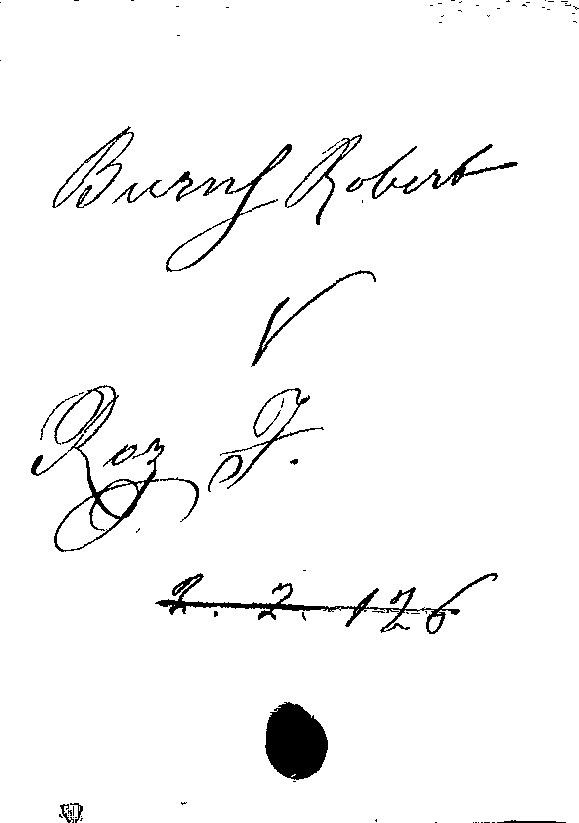 Burns Robert
V
Roz F.
2. 2. 126